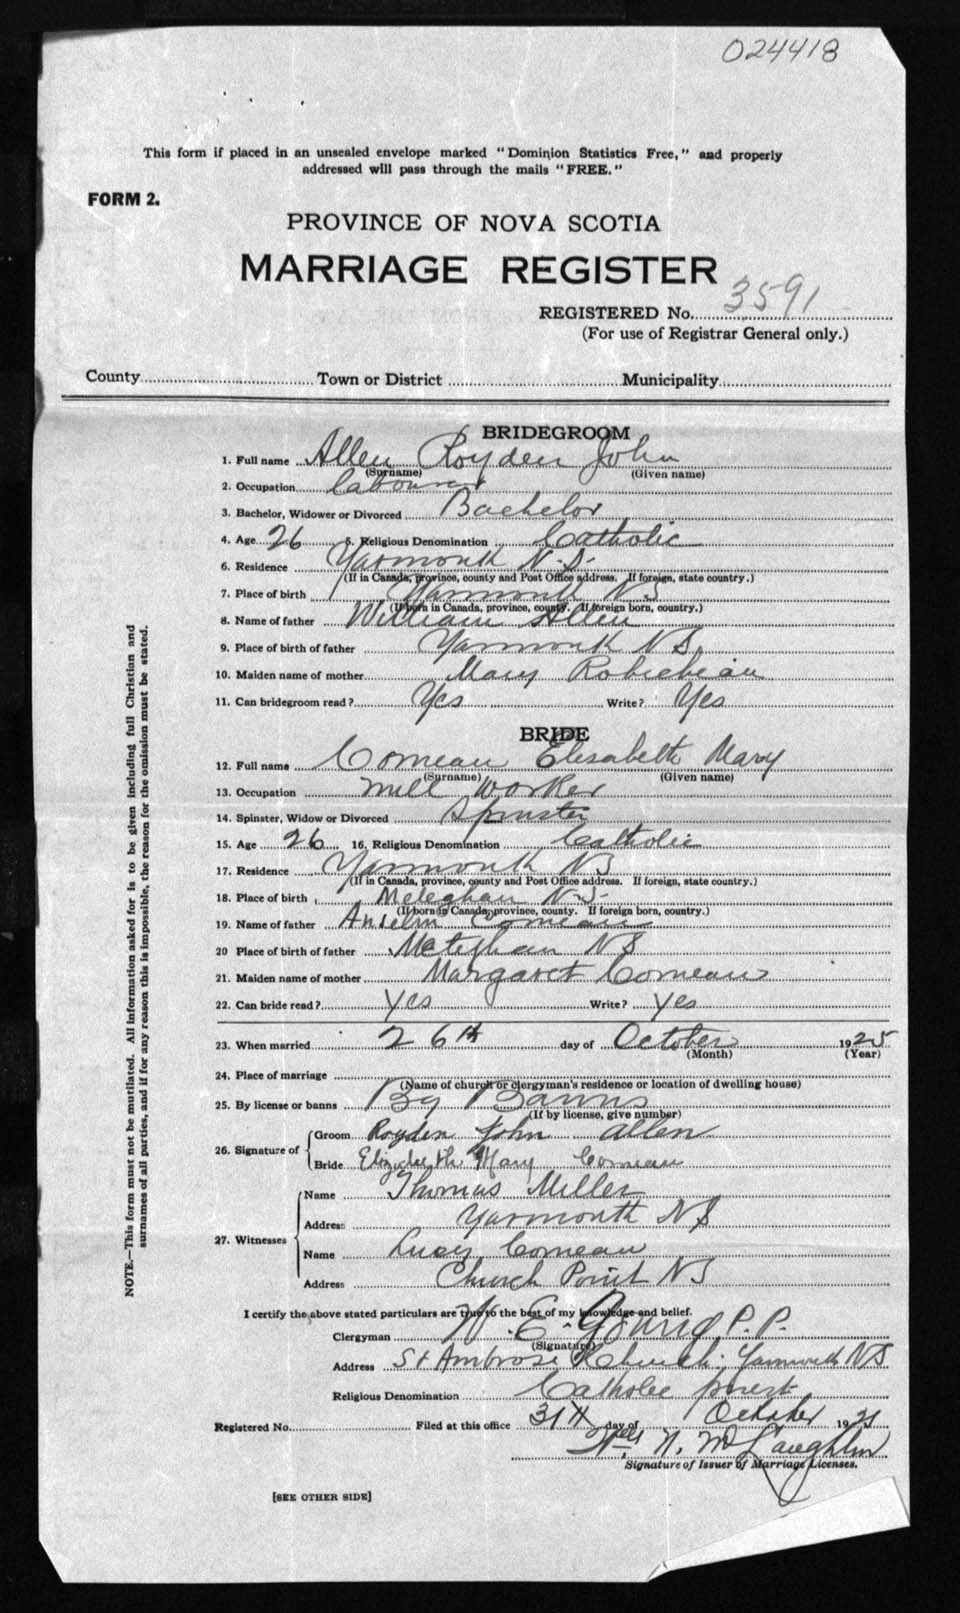 024418
This form if placed in an unsealed envelope marked "Dominion Statistics Free," and properly
addressed will pass through the mails "FREE."
FORM 2.
PROVINCE OF NOVA SCOTIA
MARRIAGE REGISTER
REGISTERED No. 3591
(For use of Registrar General only.)
County Town or District Municipality
BRIDEGROOM
1. Full name Allen Royden John
(Surname) (Given name)
2. Occupation labourer
3. Bachelor, Widower or Divorced Bachelor
4. Age 26 5. Religious Denomination Catholic
6. Residence Yarmouth N.S.
(If in Canada, province, county and Post Office address. If foreign, state country.)
7. Place of birth Yarmouth NS
(If born in Canada, province, county. If foreign born, country.)
8. Name of father William Allen
9. Place of birth of father Yarmouth NS.
10. Maiden name of mother Mary Robicheau
11. Can bridegroom read? Yes Write? Yes
BRIDE
12. Full name Comeau Elisabeth Mary
(Surname) (Given name)
13. Occupation mill worker
14. Spinster, Widow or Divorced Spinster
15. Age 26 16. Religious Denomination Catholic
17. Residence Yarmouth NS
(If in Canada, province, county and Post Office address. If foreign, state country.)
18. Place of birth Meteghan N.S.
(If born in Canada, province, county. If foreign born, country.)
19. Name of father Anselm Comeau
20 Place of birth of father Meteghan NS
21. Maiden name of mother Margaret Comeau
22. Can bride read? Yes Write? Yes
23. When married 26th day of October 1925
(Month) (Year)
24. Place of marriage
(Name of church or clergyman's residence or location of dwelling house)
25. By license or banns By Banns
(If by license, give number)
26. Signature of Groom Royden John Allen
Bride Elizabeth Mary Comeau
27. Witnesses Name Thomas Miller
Address Yarmouth NS
Name Lucy Comeau
Address Church Point NS
I certify the above stated particulars are true to the best of my knowledge and belief.
Clergyman W. E. Young P.P.
(Signature)
Address St Ambrose Church, Yarmouth NS
Religious Denomination Catholic priest
Registered No. Filed at this office 31st day of October 19
N. McLaughlin
Signature of Issuer of Marriage Licenses.
[SEE OTHER SIDE]
NOTE.—This form must not be mutilated. All information asked for is to be given including full Christian and
surnames of all parties, and if for any reason this is impossible, the reason for the omission must be stated.